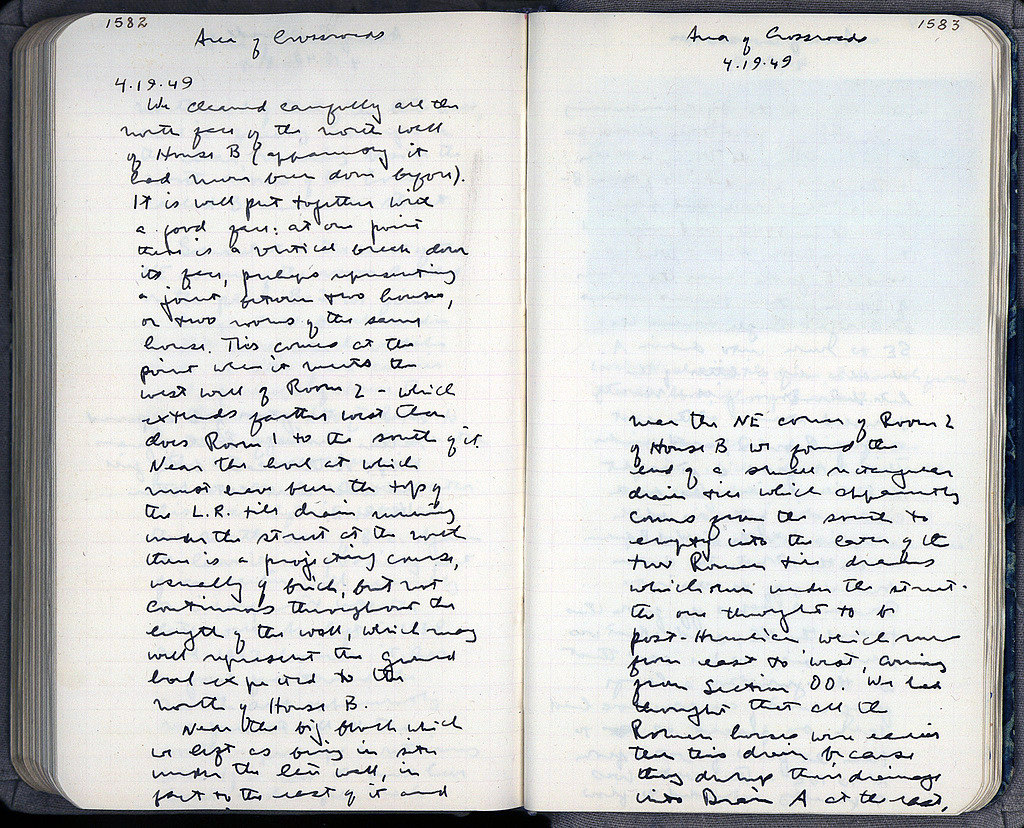 1582
Area of Crossroads
4.19.49
We cleaned carefully all the
north face of the north wall
of House B (apparently it
had never been done before).
It is well put together with
a good face: at one point
there is a vertical break down
its face, perhaps representing
a joint between two houses,
or two rooms of the same
house. This comes at the
point where it meets the
west wall of Room 2 - which
extends farther west than
does Room 1 to the south of it.
Near the level at which
must have been the top of
the L.R. tile drain running
under the street at the north
there is a projecting course,
usually of brick, but not
continuous throughout the
length of the wall, which may
well represent the ground
level expected to the
north of House B.
Near the big block which
we left as being in situ
under the late wall, in
fact to the east of it and
1583
Area of Crossroads
4.19.49
near the NE corner of Room 2
of House B we found the
end of a small rectangular
drain tile which apparently
comes from the south to
empty into the later of the
two Roman tile drains
which run under the street -
the one thought to be
post-Herulian which runs
from east to west, coming
from Section OO. We had
thought that all the
Roman houses were earlier
than this drain because
they dump their drainage
into Drain A at the east,